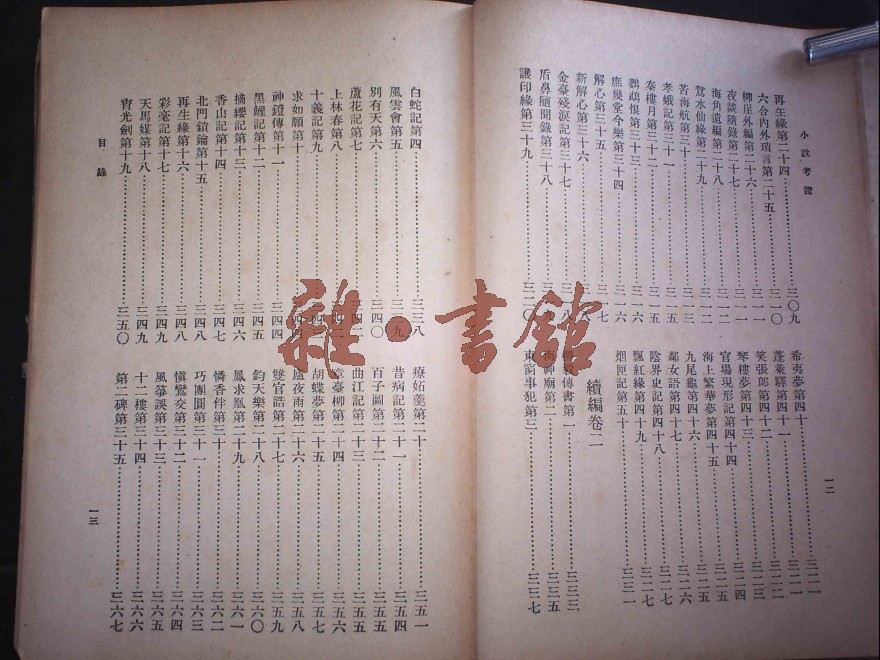 小說考證
再生緣第二十四 三〇九
六合內外瑣言第二十五 三一〇
柳崖外編第二十六 三一一
夜談隨錄第二十七 三一一
海角遺編第二十八 三一二
鴛水仙緣第二十九 三一二
苦海航第三十 三一三
孝娥記第三十一 三一四
秦樓月第三十二 三一五
鸚鵡恨第三十三 三一五
庶幾堂今樂第三十四 三一六
解心第三十五 三一七
新解心第三十六
金臺殘淚記第三十七
盾鼻隨聞錄第三十八
護印緣第三十九 三二〇
希夷夢第四十 三二一
蓬萊驛第四十一 三二一
笑張郎第四十二 三二二
琴樓夢第四十三 三二四
官場現形記第四十四 三二三
海上繁華夢第四十五 三二五
九尾龜第四十六 三二六
鄰女語第四十七 三二七
陰界史記第四十八 三二七
飄紅緣第四十九 三二七
烟匣記第五十 三三一
續編卷二
傳書第一 三三三
神廟第二 三三五
東窗事犯第三 三三七
一二
白蛇記第四 三三八
風雲會第五
別有天第六 三四〇
蘆花記第七
上林春第八
十義記第九
求如願第十
神鐙傳第十一 三四四
黑鯉記第十二 三四五
摘纓記第十三 三四六
香山記第十四 三四七
北門鎖鑰第十五 三四八
再生緣第十六 三四八
彩毫記第十七 三四九
天馬媒第十八 三四九
宵光劍第十九 三五〇
目錄
療妬羹第二十 三五一
昔病記第二十一 三五四
百子圖第二十二 三五五
曲江記第二十三 三五五
章臺柳第二十四 三五六
胡蝶夢第二十五 三五七
蘆夜雨第二十六 三五八
雙官誥第二十七 三五九
鈞天樂第二十八 三六〇
鳳求凰第二十九 三六一
憐香伴第三十 三六二
巧團圓第三十一 三六三
慎鸞交第三十二 三六四
風箏誤第三十三 三六五
十二樓第三十四 三六六
第二碑第三十五 三六七
一三
雜·書館